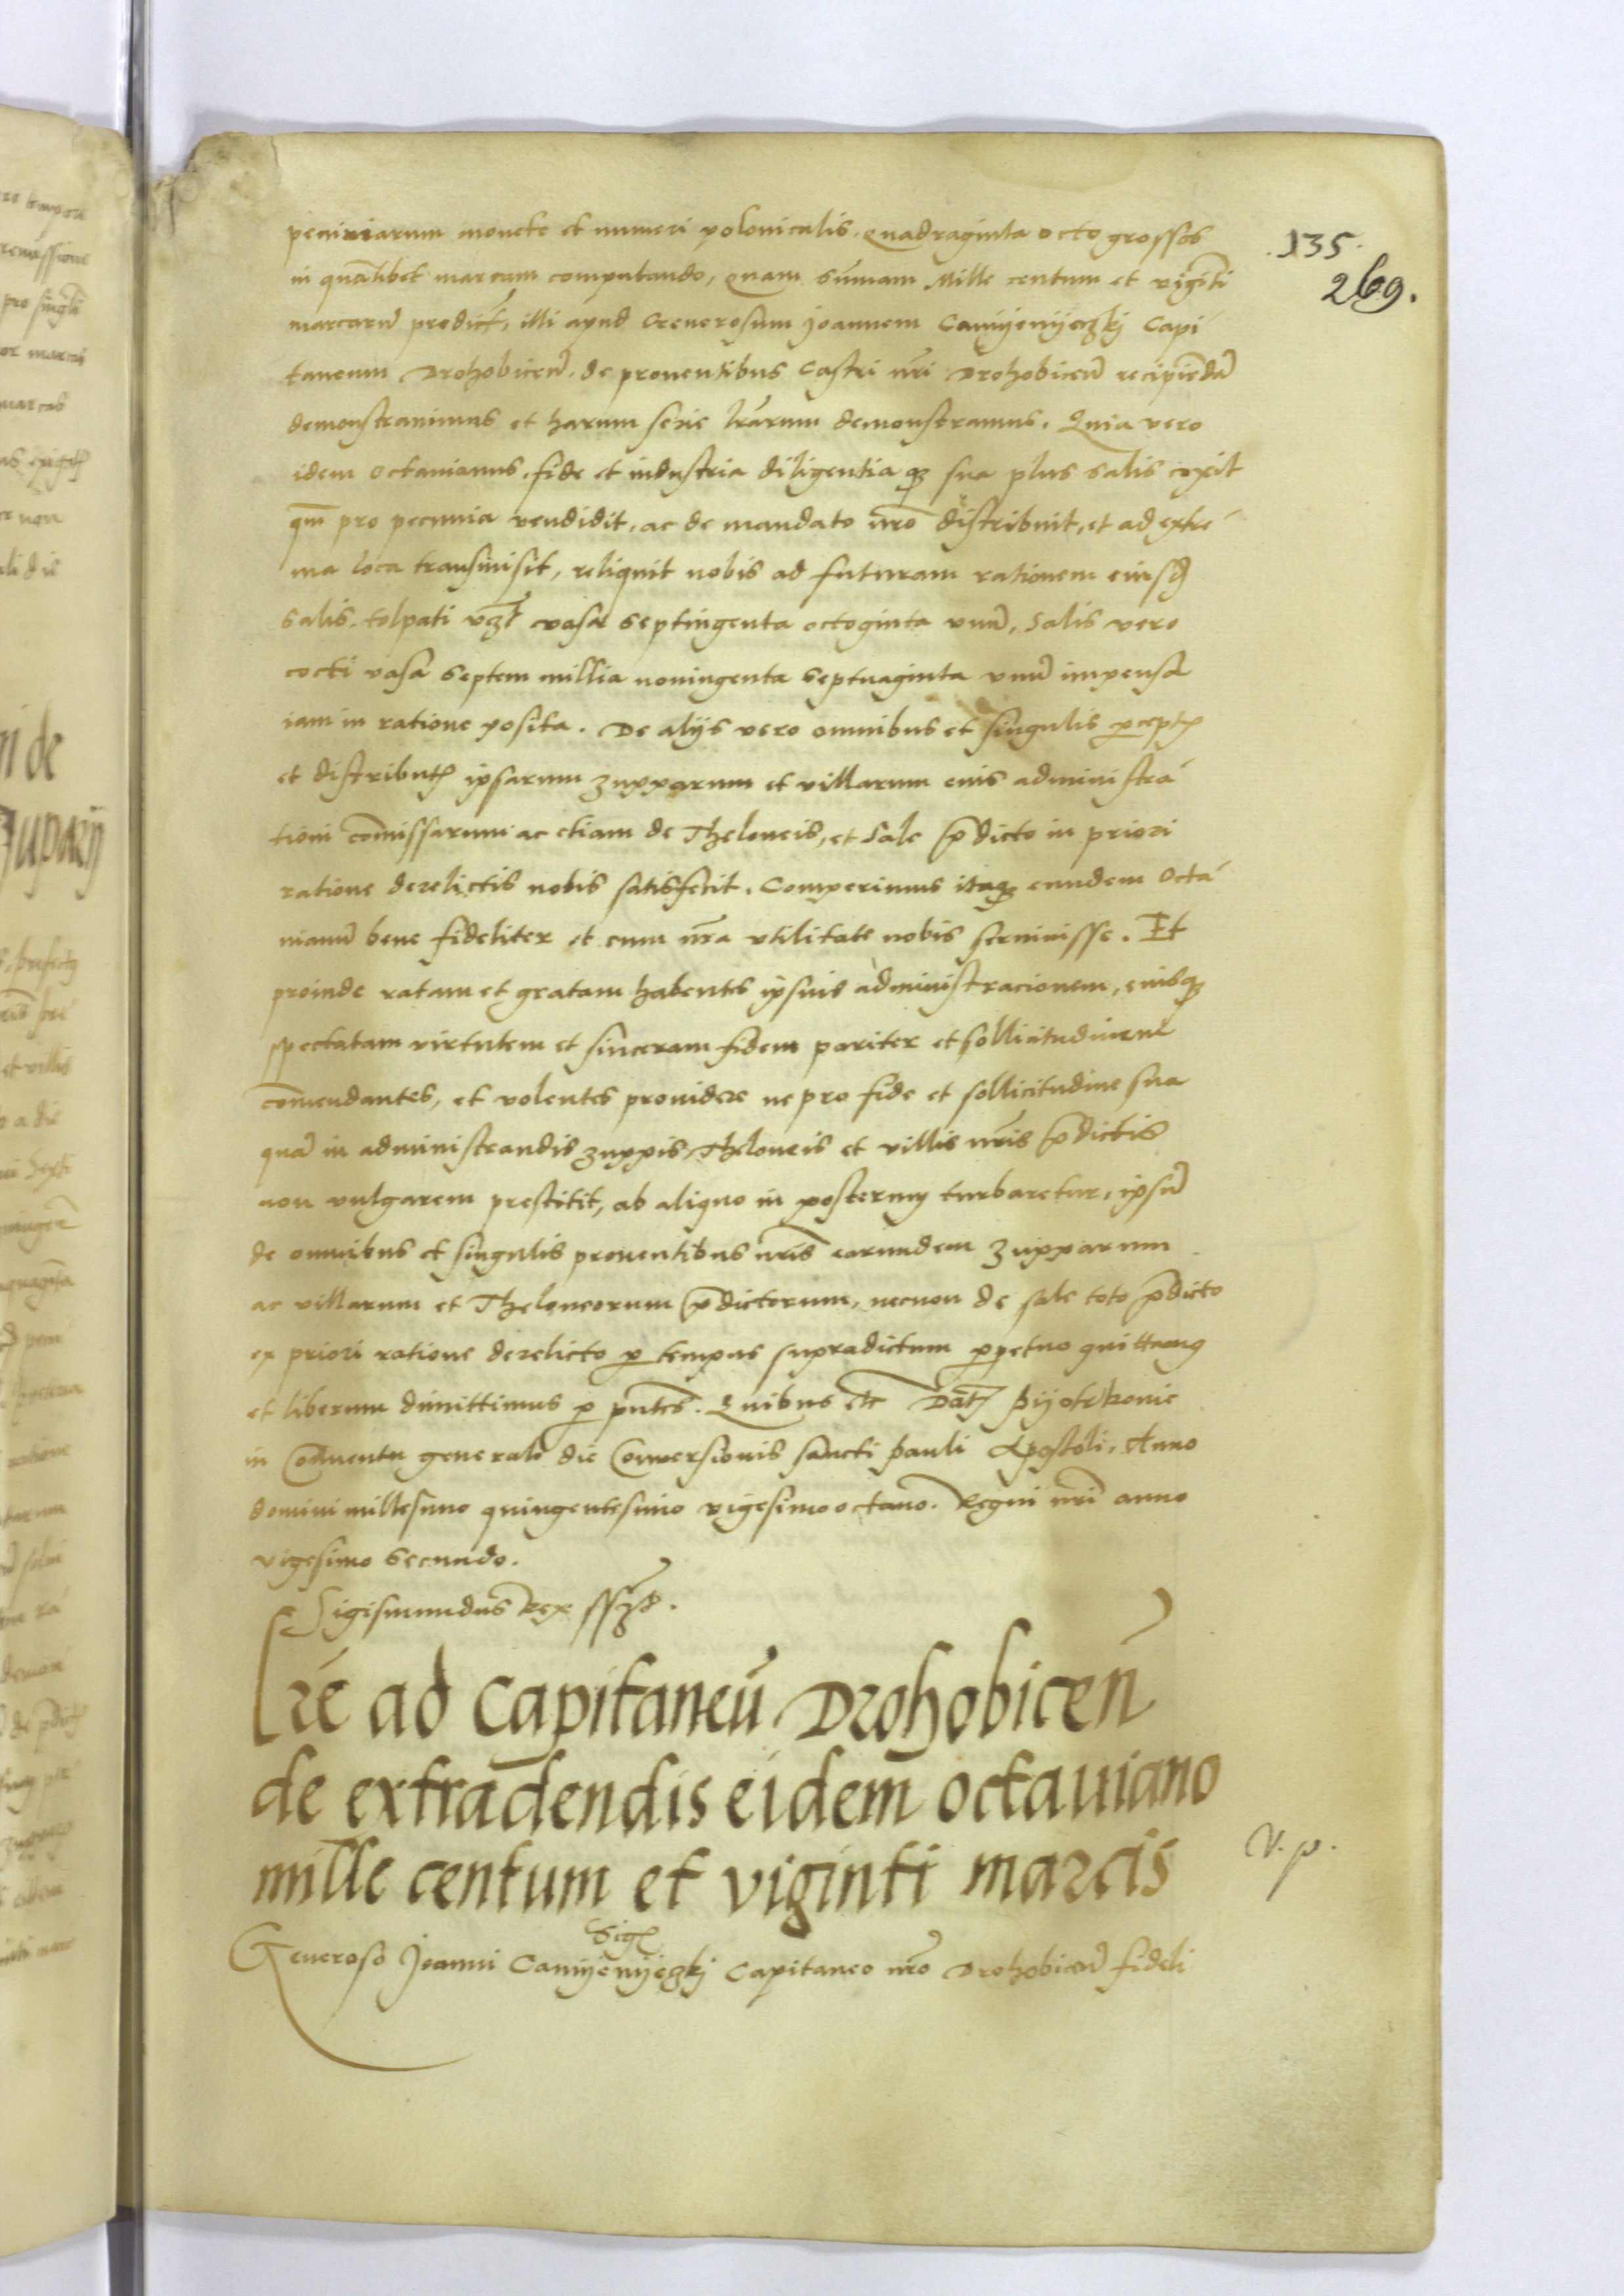 135.
269.
pecuniarum monete et numeri polonicalis, quadraginta octo grossos
in quālibet marcam computando, quam sūmam Mille centum et viginti
marcarū predict, illi apud Generosum Joannem Camyenyeczkj Capi
taneum Drohobiceñ. de prouentibus Castri nr̄i Drohobiceñ recipiēdā
demonstrauimus et harum serie lr̄arum demonstramus. Quia vero
idem Octauianus, fide et industria diligentia qz sua plus salis coxit
qm̄ pro pecunia vendidit, ac de mandato nr̄o distribuit, et ad extre
ma loca transmisit, reliquit nobis ad futuram rationem eiusd
salis. tolpati vzt vasa septingenta octoginta vnū, Salis vero
cocti vasa septem millia noningenta septuaginta vnū impensa
iam in ratione posita. De alijs vero omnibus et singulis ꝑcept
et distribut ipsarum zupparum et villarum eius administra
tioni com̄issarum ac etiam de Theloneis, et Sale p̄dicto in priori
ratione derelictis nobis satisfecit. Comperimus itaqz eundem Octa
uianū bene fideliter et cum nr̄a vtilitate nobis seruiuisse. Et
proinde ratam et gratam habentes ipsius administracionem, eiusqz
spectatam virtutem et sinceram fidem pariter et sollicitudinem
com̄endantes, et volentes prouidere ne pro fide et sollicitudine sua
quā in administrandis zuppis, Theloneis et villis nr̄is p̄dictis
non vulgarem prestitit, ab aliquo in posterum turbaretur, ipsū
de omnibus et singulis prouentibus nr̄is earundem zupparum
ac villarum et Theloneorum p̄dictorum, necnon de sale toto p̄dicto
ex priori ratione derelicto ꝑ tempus supradictum ꝑpetuo quittamus
et liberum dimittimus ꝑ pn̄tes. Quibus etc Dat Pyotrkouie
in Conuentu generali die Conuersionis sancti Pauli Apostoli, Anno
domini millesimo quingentesimo vigesimo octauo. Regni nr̄i anno
vigesimo secundo.
Sigismundus Rex sszt.
Lr̄e ad Capitaneū Drohobiceñ
de extradendis eidem octauiano
mille centum et viginti marcis
V. p.
Sig
Generoso Joanni Camyenyeczkj Capitaneo nr̄o Drohobiceñ fideli